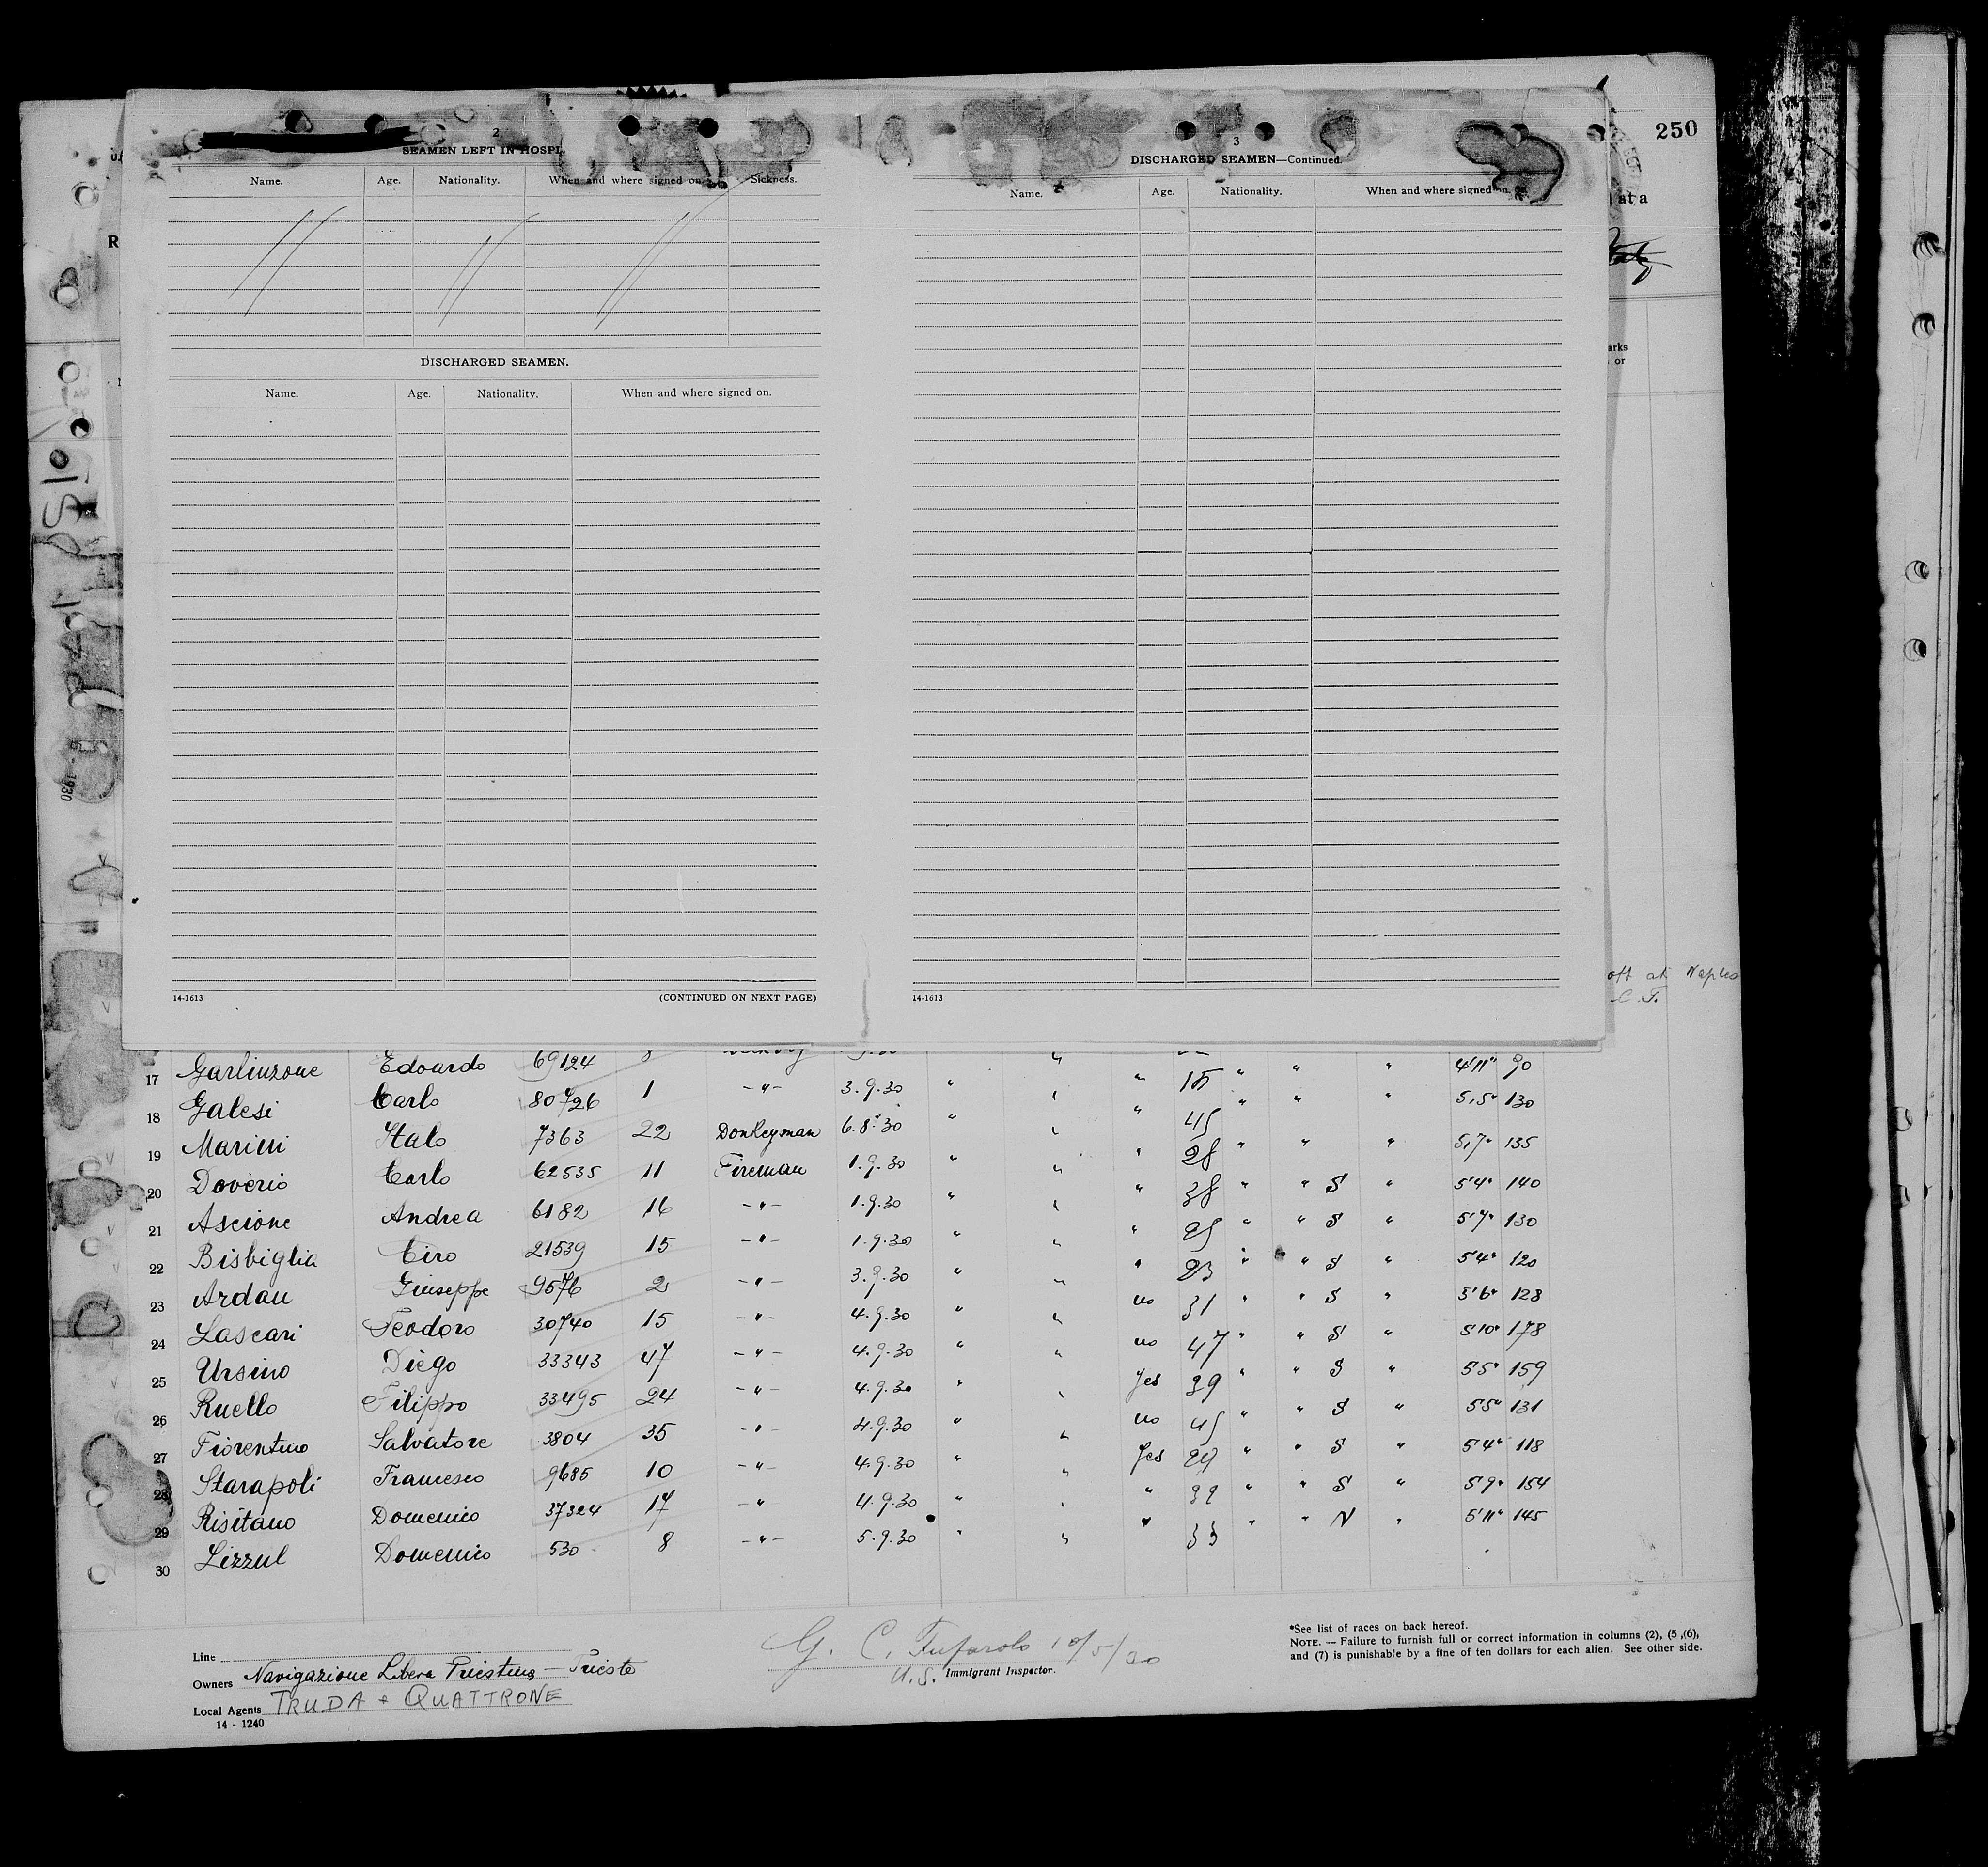 250
2
SEAMEN LEFT IN HOSPI
Name. Age. Nationality. When and where signed on. Sickness.
DISCHARGED SEAMEN.
Name. Age. Nationality. When and where signed on.
14-1613 (CONTINUED ON NEXT PAGE)
3
DISCHARGED SEAMEN—Continued.
Name. Age. Nationality. When and where signed on.
14-1613
at a
arks
or
off at Naples
1930
17 Garlinzone Edoardo 69124 8
18 Galesi Carlo 80726 1 -"- 3.9.30 " " " 15 " " " 4'11" 90
19 Marini Italo 7363 22 Donkeyman 6.8.30 " " " 45 " " " 5,5" 130
20 Doverio Carlo 62535 11 Fireman 1.9.30 " " " 28 " " " 5,7" 135
21 Ascione Andrea 6182 16 -"- 1.9.30 " " " 38 " " S " 5'4" 140
22 Bisbiglia Ciro 21539 15 -"- 1.9.30 " " " 25 " " S " 5'7" 130
23 Ardau Giuseppe 9576 2 -"- 3.9.30 " " " 23 " " S " 5'4" 120
24 Lascari Teodoro 30740 15 -"- 4.9.30 " " no 31 " " S " 5'6" 128
25 Ursino Diego 33343 47 -"- 4.9.30 " " no 47 " " S " 5'10" 178
26 Ruello Filippo 33495 24 -"- 4.9.30 " " Yes 39 " " S " 5'5" 159
27 Fiorentino Salvatore 3804 35 -"- 4.9.30 " " no 45 " " S " 5'5" 131
28 Starapoli Francesco 9685 10 -"- 4.9.30 " " Yes 29 " " S " 5'4" 118
29 Risitano Domenico 37324 17 -"- 4.9.30 " " " 39 " " S " 5'9" 154
30 Lizzul Domenico 530 8 -"- 5.9.30 " " " 33 " " N " 5'11" 145
Line
Owners Navigazione Libera Triestina — Trieste
Local Agents TRUDA + QUATTRONE
14 - 1240
G. C. 10/5/30
U.S. Immigrant Inspector.
*See list of races on back hereof.
NOTE. — Failure to furnish full or correct information in columns (2), (5 ,(6),
and (7) is punishable by a fine of ten dollars for each alien. See other side.